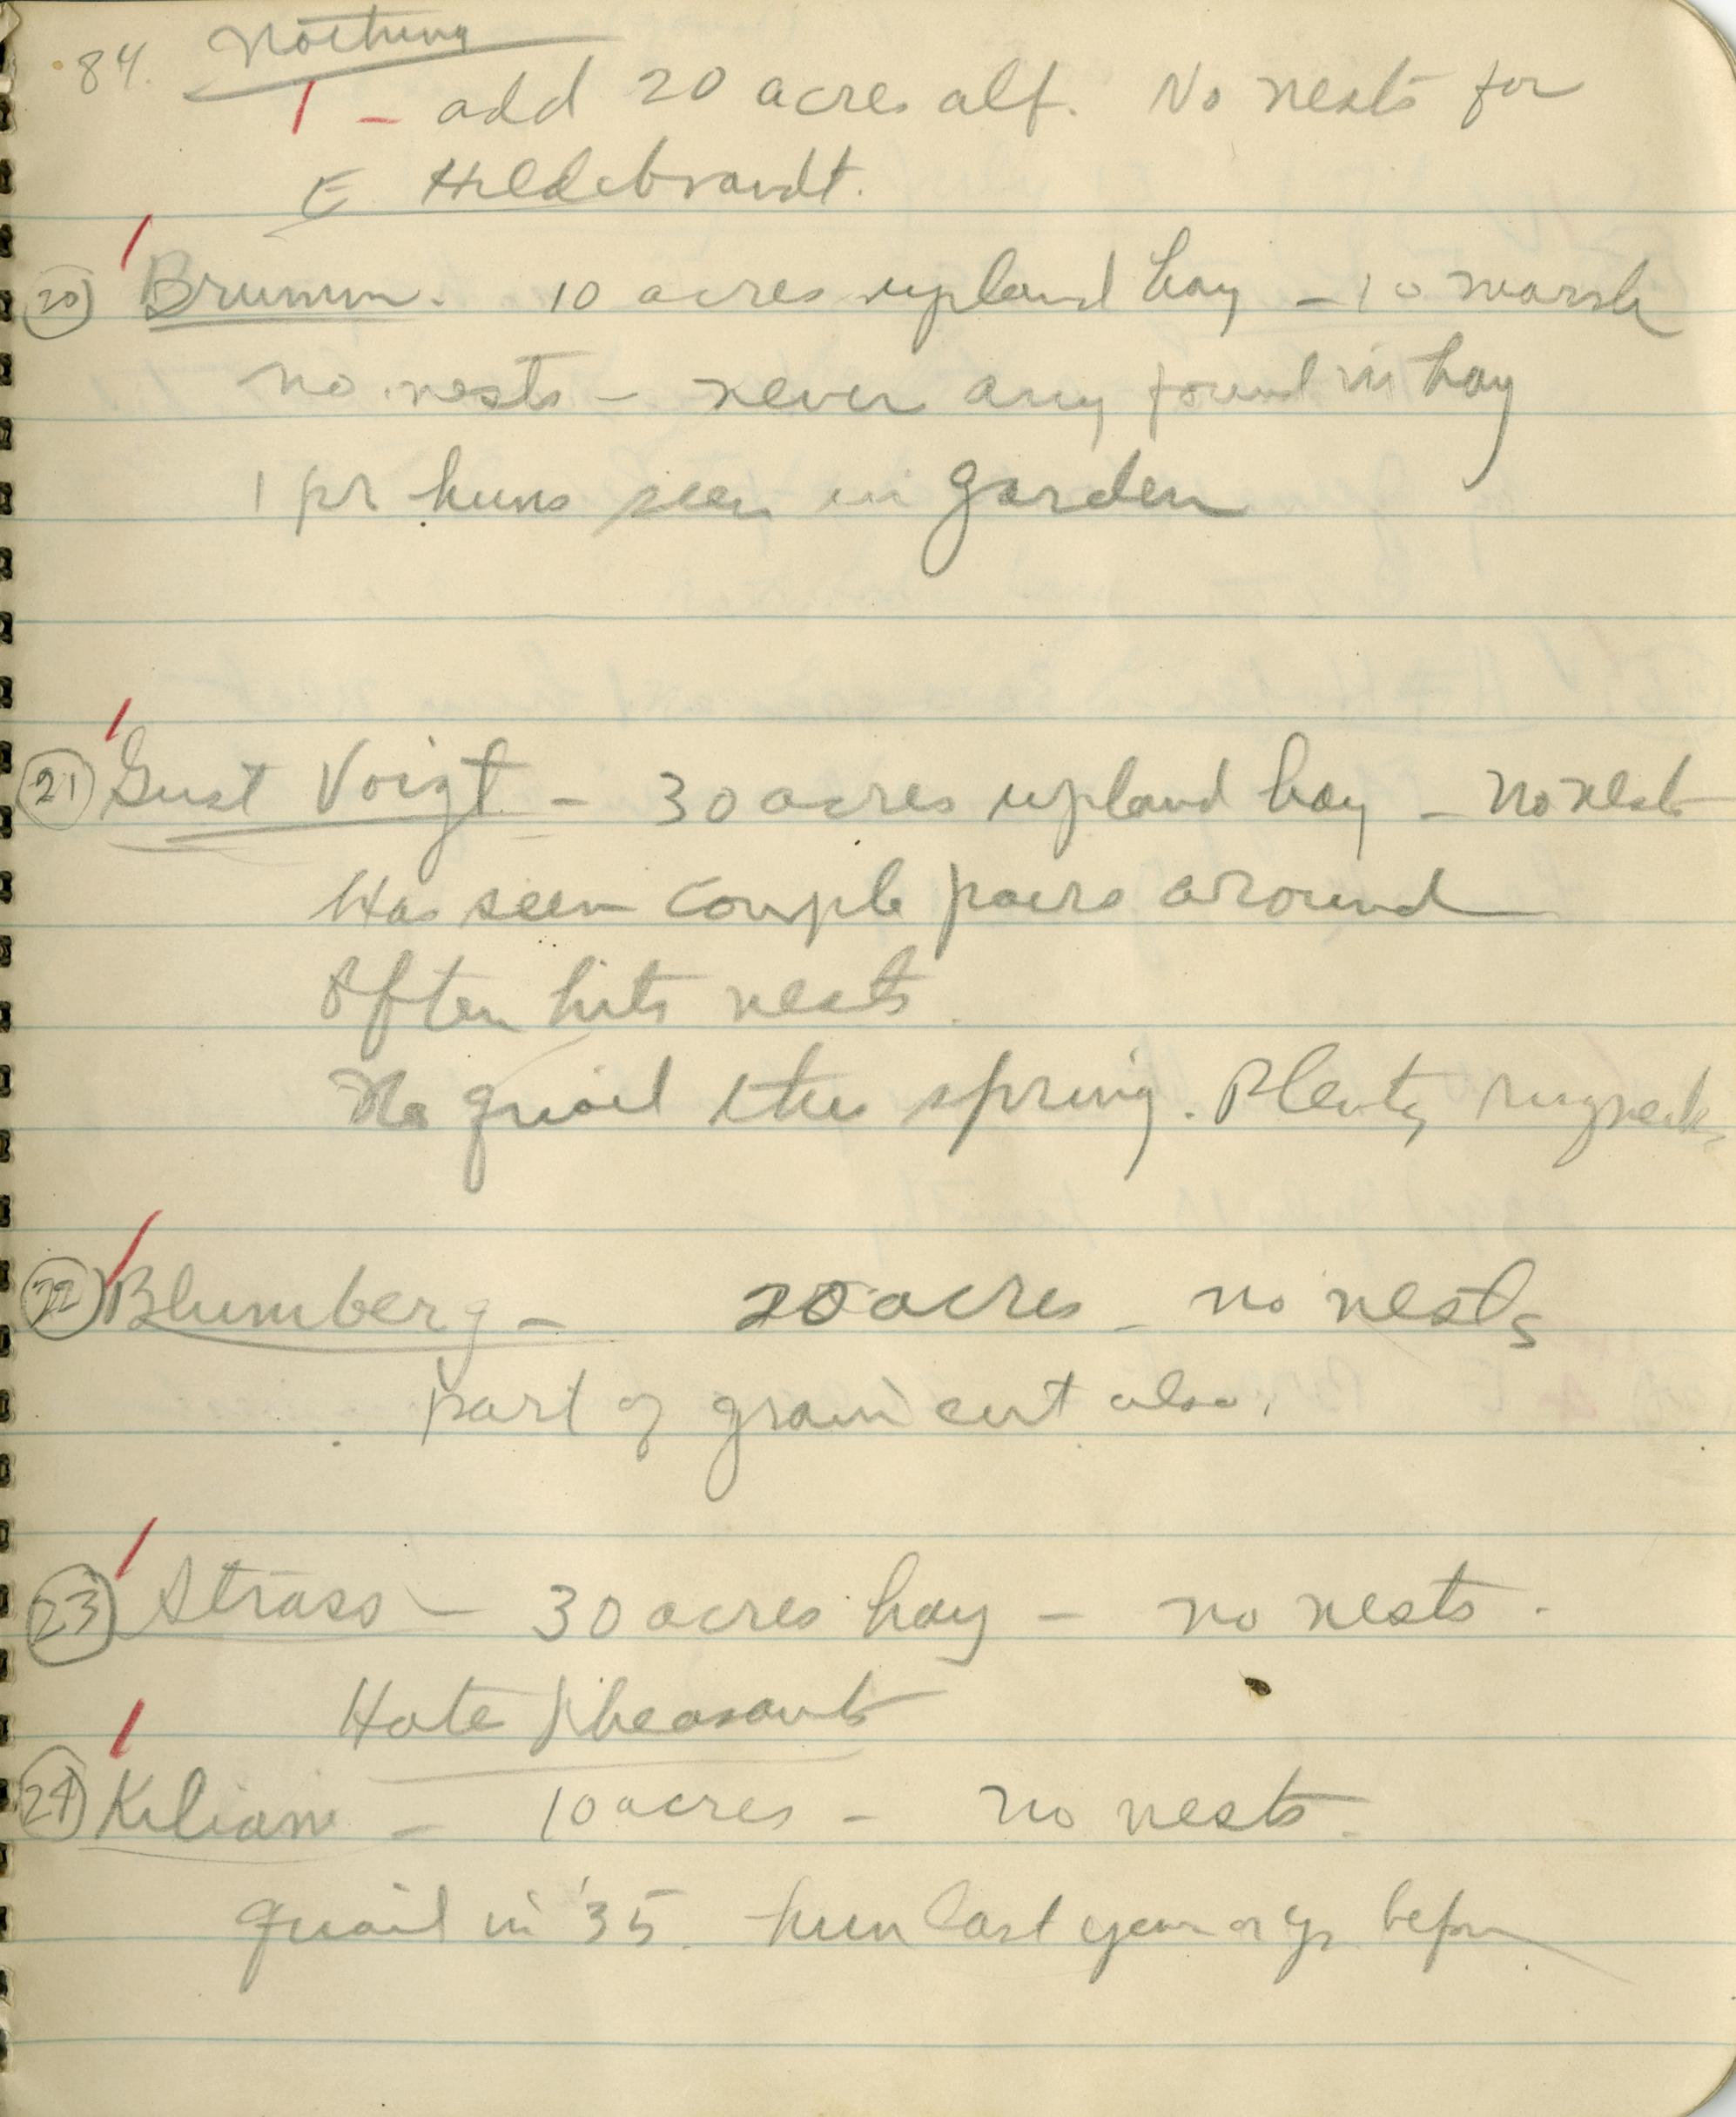 84. Nothing
1 - add 20 acres alf. No nests for
E Hildebrandt.
20 Brumm. 10 acres upland hay - 10 marsh
no nests - never any found in hay
1 pr huns seen in garden
21 Gust Voigt - 30 acres upland hay - no nests
Has seen couple pairs around
Often hits nests.
No quail this spring. Plenty ringnecks
22 Blumberg - 20 acres - no nests
part of grain cut also.
23 Strass - 30 acres hay - no nests.
Hate pheasants
24 Kilian - 10 acres - no nests.
quail in '35. hun last year or yr before